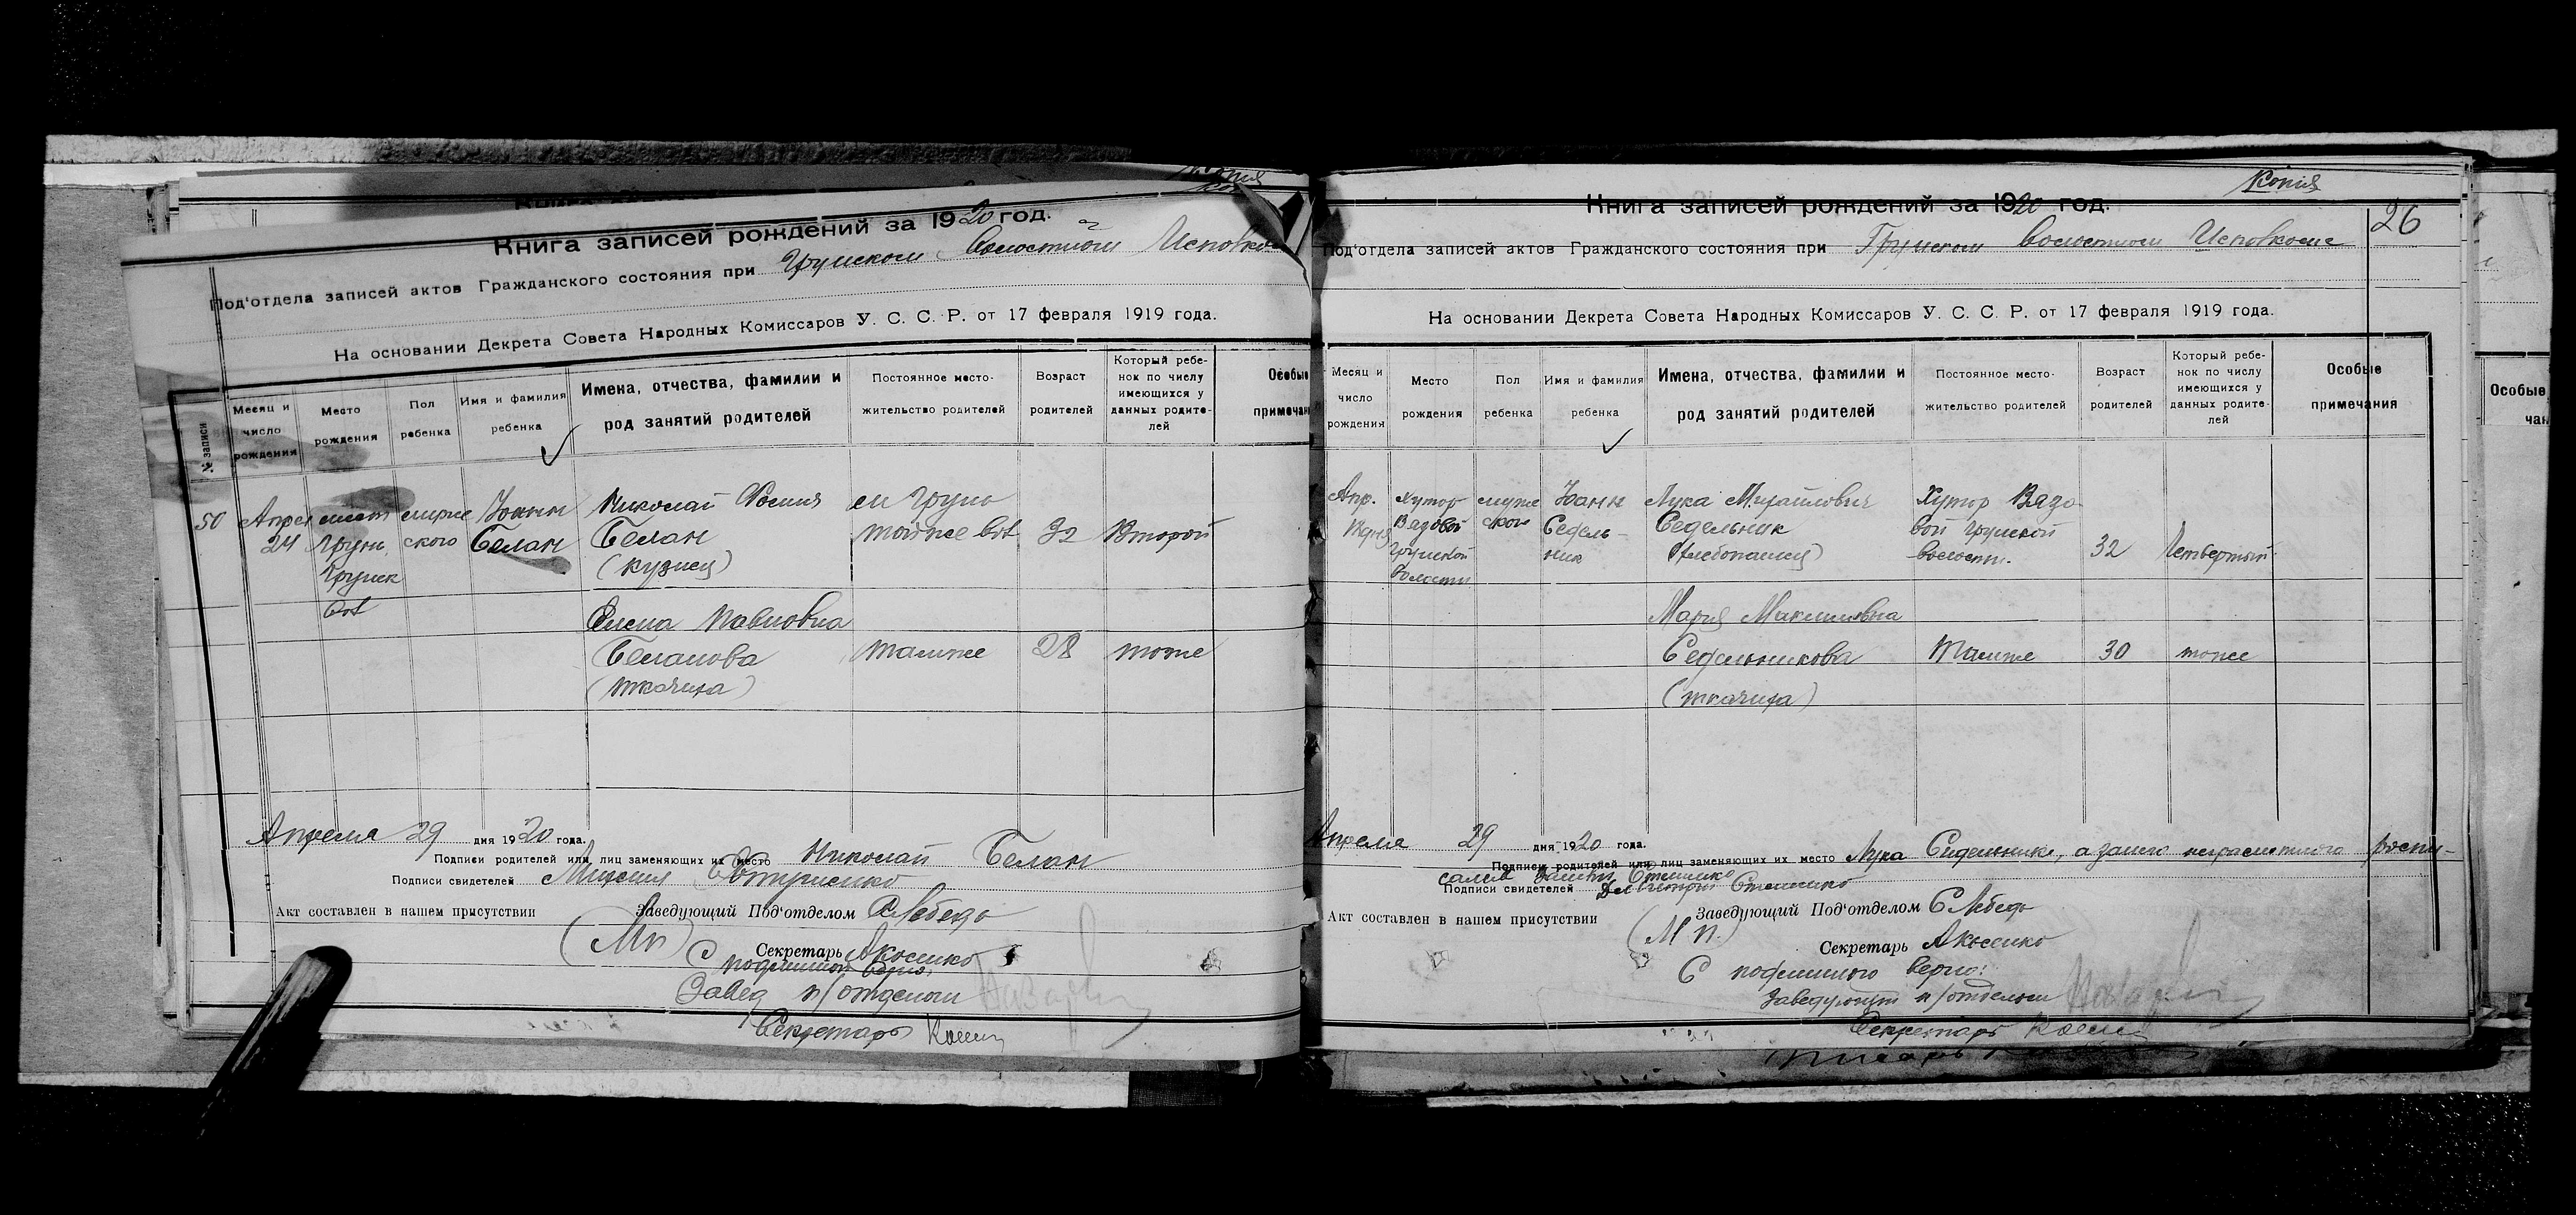 Копия
Книга записей рождений за 1920 год.
Под'отдела записей актов Гражданского состояния при Грунском Волостном Исполком
На основании Декрета Совета Народных Комиссаров У. С. С. Р. от 17 февраля 1919 года.
№ записи
Месяц и число рождения
Место рождения
Пол ребенка
Имя и фамилия ребенка
Имена, отчества, фамилии и род занятий родителей
Постоянное место-жительство родителей
Возраст родителей
Который ребе-нок по числу имеющихся у данных родите-лей
Особые примечан
50
Апрел 24
мест Грунь Грунск вол
мужс ского
Иоанн Белан
Николай Фомич
Белан
(кузнец)
м Грунь
той же вол
32
Второй
Елена Павловна
Беланова
(ткачиха)
там же
28
тоже
Апреля 29 дня 1920 года.
Подписи родителей или лиц заменяющих их место Николай Белан
Подписи свидетелей Михаил
Акт составлен в нашем присутствии
Заведующий Под'отделом С Лебедь
(М п)
Секретарь
С подлинным верно:
Завед п/отделом
Секретарь
Копия
26
Книга записей рождений за 1920 год.
Под'отдела записей актов Гражданского состояния при Грунском Волостном Исполкоме
На основании Декрета Совета Народных Комиссаров У. С. С. Р. от 17 февраля 1919 года.
Месяц и число рождения
Место рождения
Пол ребенка
Имя и фамилия ребенка
Имена, отчества, фамилии и род занятий родителей
Постоянное место-жительство родителей
Возраст родителей
Который ребе-нок по числу имеющихся у данных родите-лей
Особые примечания
Апр.
хутор Вязовой Грунской волости
муже ского
Иоанн Седель-ник
Лука Михайлович
Седельник
(хлебопашец)
Хутор Вязо
вой Грунской
волости.
32
Четвертый
Мария Максимовна
Седельникова
(ткачиха)
Там же
30
тоже
Апреля 29 дня 1920 года.
Подписи родителей или лиц заменяющих их место Лука Сидельник, а за него неграмотного роспи-
Подписи свидетелей
Акт составлен в нашем присутствии
Заведующий Под'отделом С Лебедь
(М п.)
Секретарь
С подлинного верно:
Заведующий п/отделом
Секретарь
Особые
чан